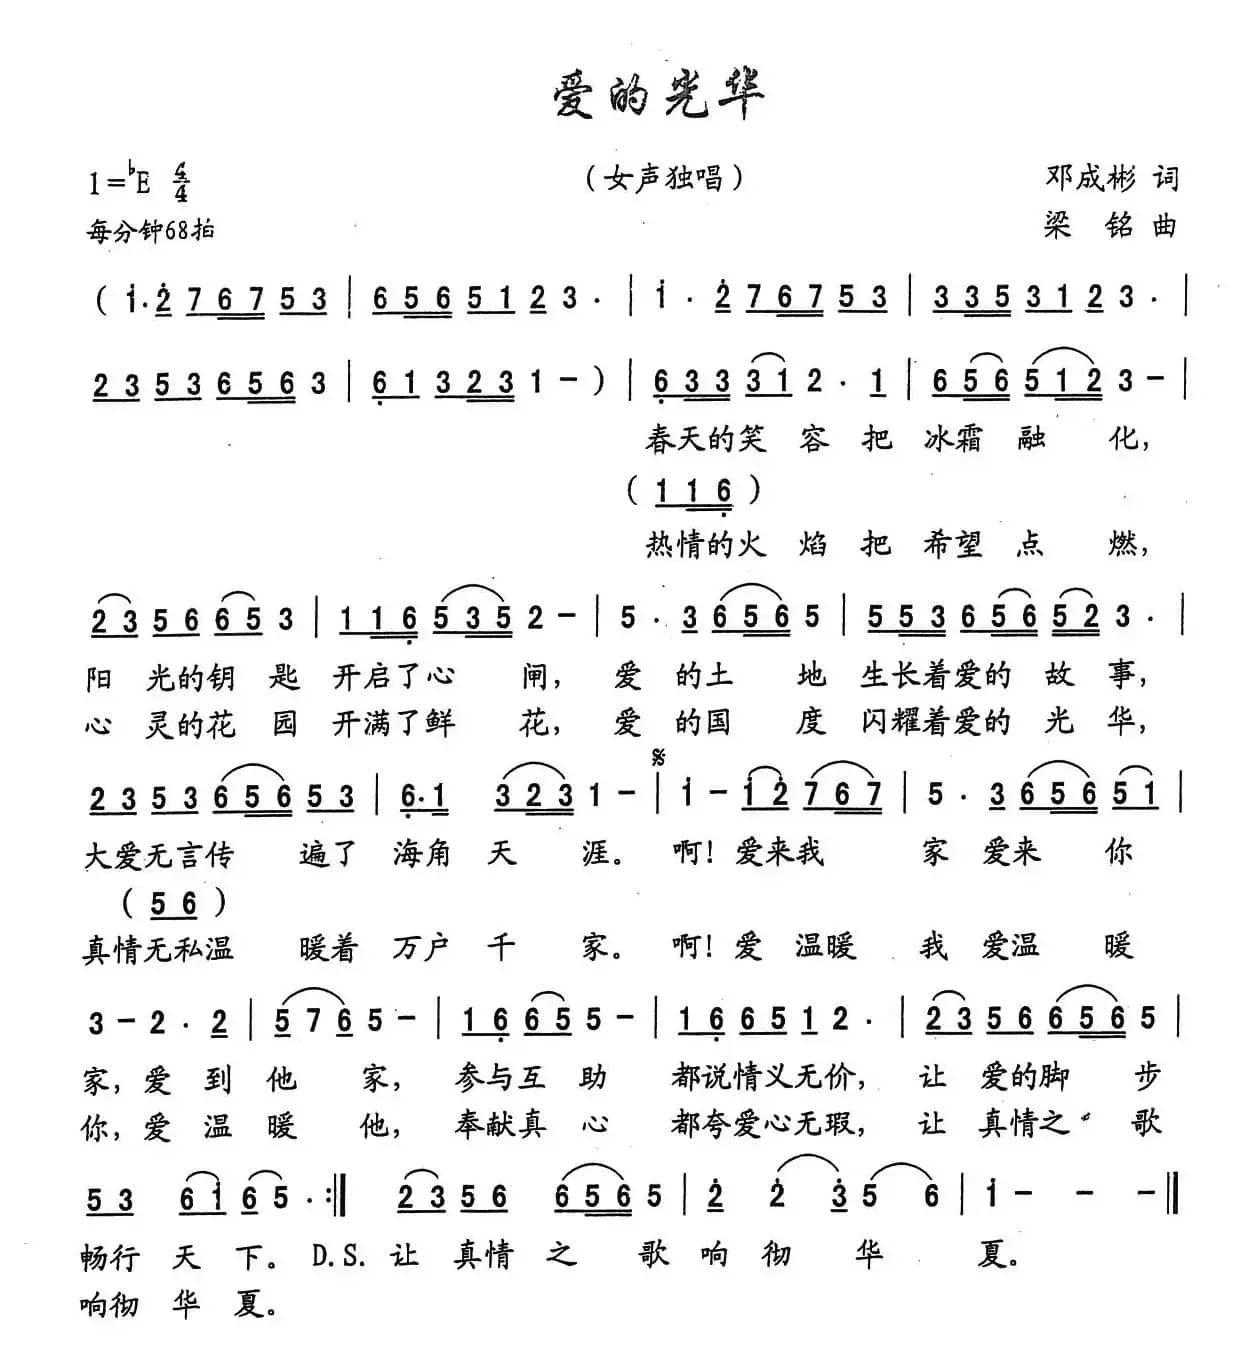 爱的光华
1=♭E 4/4 （女声独唱） 邓成彬 词
每分钟68拍 梁 铭 曲
( i· 2 7 6 7 5 3 | 6 5 6 5 1 2 3 · | i · 2 7 6 7 5 3 | 3 3 5 3 1 2 3 · |
2 3 5 3 6 5 6 3 | 6 1 3 2 3 1 – ) | 6 3 3 3 1 2 · 1 | 6 5 6 5 1 2 3 – |
春天的笑 容 把 冰霜 融 化，
( 1 1 6 )
热情的火 焰 把 希望 点 燃，
2 3 5 6 6 5 3 | 1 1 6 5 3 5 2 – | 5 · 3 6 5 6 5 | 5 5 3 6 5 6 5 2 3 · |
阳 光的钥 匙 开启了心 闸， 爱 的土 地 生长着爱的 故 事，
心 灵的花 园 开满了鲜 花， 爱 的国 度 闪耀着爱的 光 华，
𝄋
2 3 5 3 6 5 6 5 3 | 6· 1 3 2 3 1 – | i – i 2 7 6 7 | 5 · 3 6 5 6 5 1 |
大爱无言传 遍了 海角 天 涯。 啊！爱来我 家 爱来 你
( 5 6 )
真情无私温 暖着 万户 千 家。 啊！爱 温暖 我 爱温 暖
3 – 2 · 2 | 5 7 6 5 – | 1 6 6 5 5 – | 1 6 6 5 1 2 · | 2 3 5 6 6 5 6 5 |
家，爱 到 他 家， 参与互 助 都说情义无价， 让 爱的脚 步
你，爱 温 暖 他， 奉献真 心 都夸爱心无瑕， 让 真情之 歌
5 3 6 i 6 5 · :‖ 2 3 5 6 6 5 6 5 | 2 2 3 5 6 | i – – – ‖
畅行 天 下。 D.S. 让 真情 之 歌 响 彻 华 夏。
响彻 华 夏。